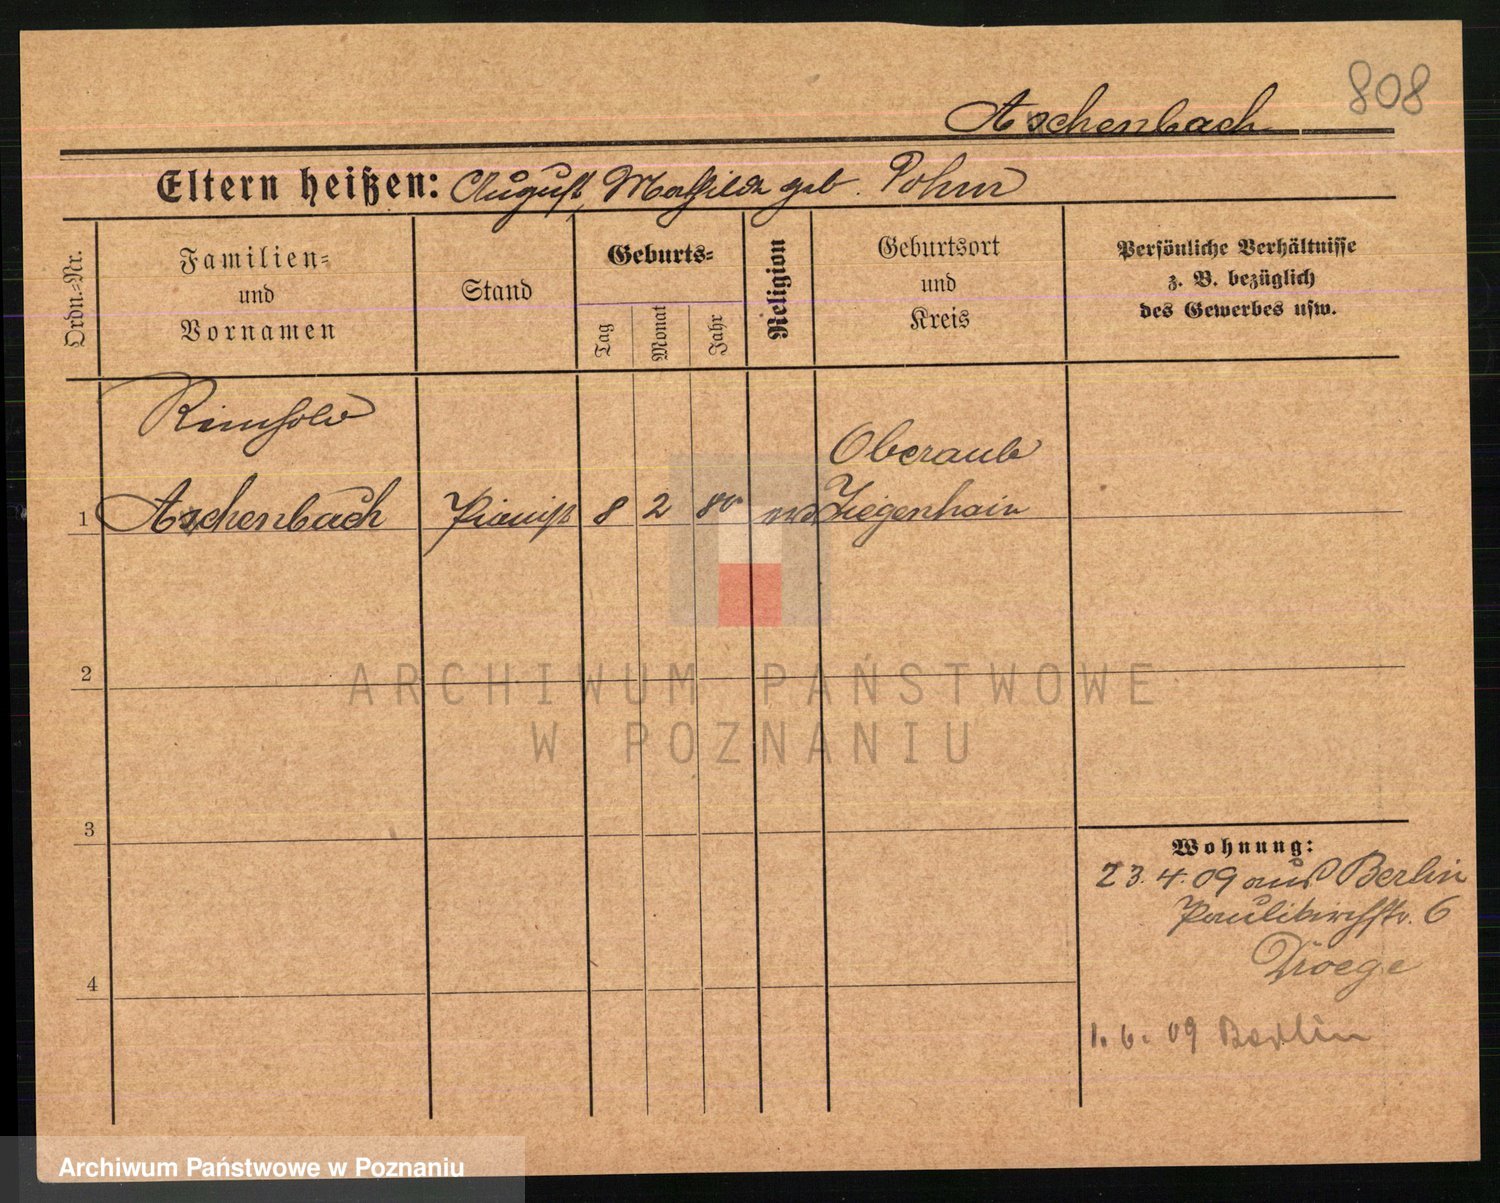 808
Aschenbach
Eltern heißen: August, Mathilde geb. Pohm
Ordn.=Nr.
Familien=
und
Vornamen
Stand
Geburts=
Tag
Monat
Jahr
Religion
Geburtsort
und
Kreis
Persönliche Verhältnisse
z. B. bezüglich
des Gewerbes usw.
Reinhold
Oberaula
1 Aschenbach Pianist 8 2 80 Ziegenhain
2
ARCHIWUM PAŃSTWOWE
W POZNANIU
3
Wohnung:
23.4.09 aus Berlin
Paulikirchstr. 6
Droege
4
1.6.09 Berlin
Archiwum Państwowe w Poznaniu